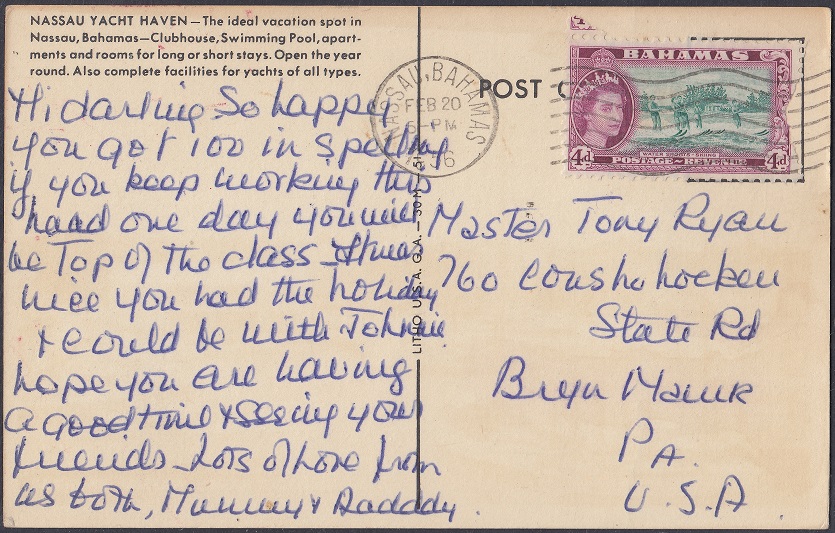 NASSAU YACHT HAVEN—The ideal vacation spot in
Nassau, Bahamas—Clubhouse, Swimming Pool, apart-
ments and rooms for long or short stays. Open the year
round. Also complete facilities for yachts of all types.
Hi darling So happy
you got 100 in Spelling
if you keep working this
hard one day you will
be Top of the class It was
nice you had the holiday
& could be with Johnnie
hope you are having
a good time & seeing your
friends Lots of Love from
us both, Mummy & Dadddy.
LITHO U.S.A. G.A.—50M—51
POST
NASSAU, BAHAMAS
FEB 20
PM
BAHAMAS
4d
WATER SPORTS-SKIING
POSTAGE-REVENUE
4d
Master Tony Ryan
760 Conshohocken
State Rd
Bryn Mawr
PA.
U.S.A